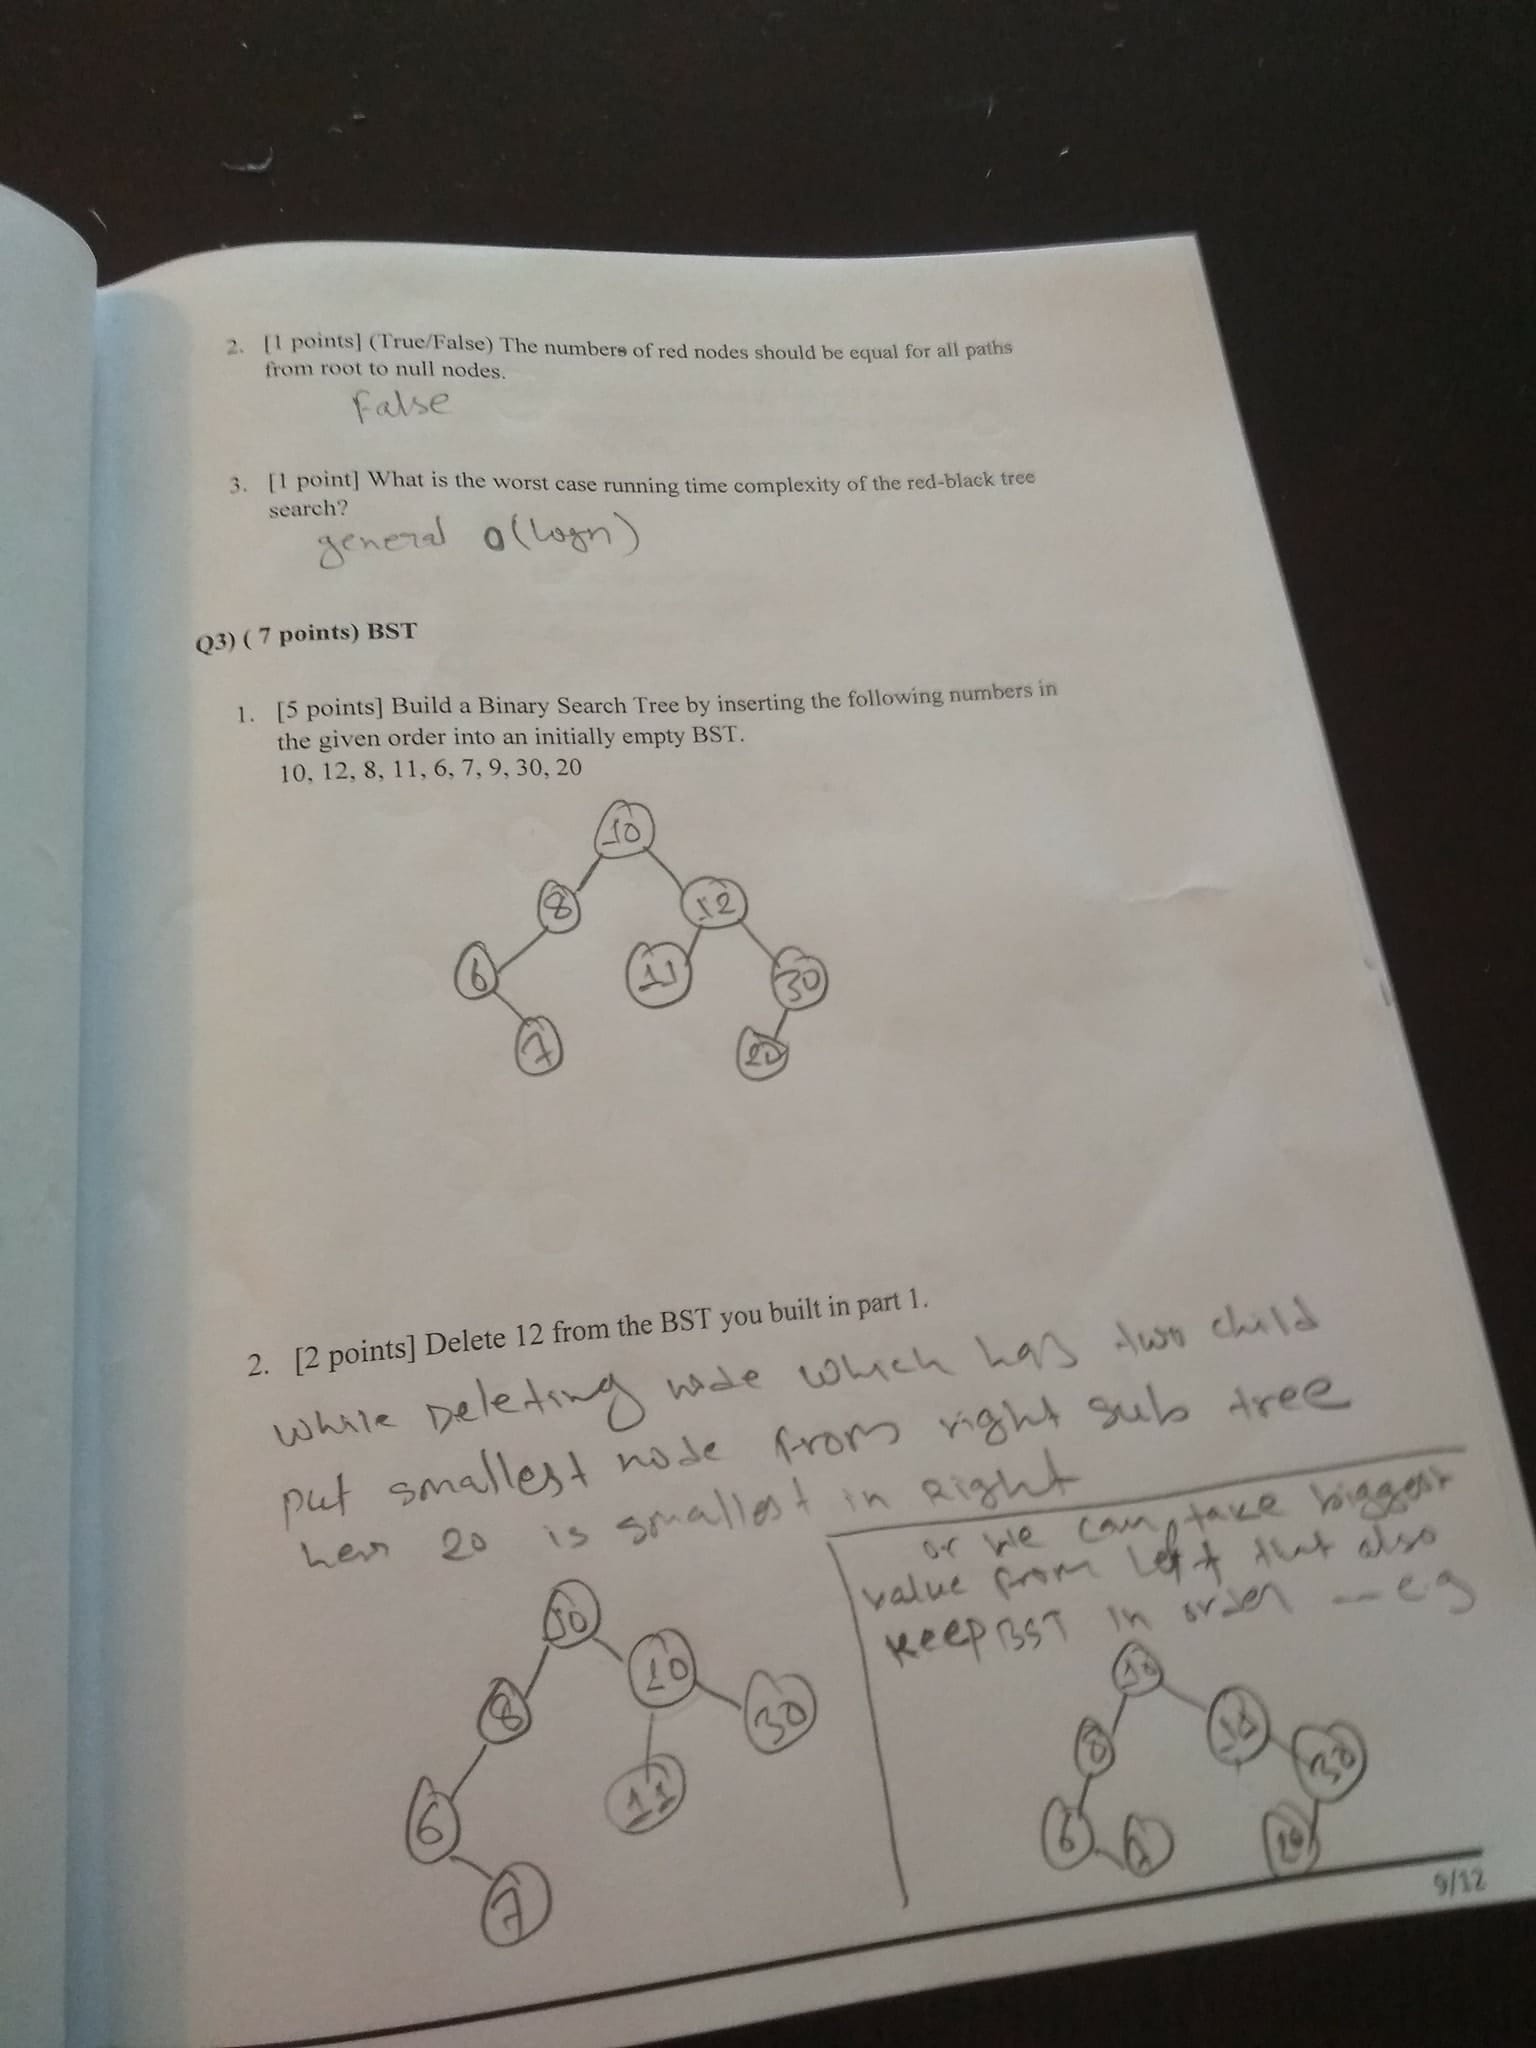 2. [1 points] (True/False) The numbers of red nodes should be equal for all paths
from root to null nodes.
False
3. [1 point] What is the worst case running time complexity of the red-black tree
search?
general O(logn)
Q3) ( 7 points) BST
1. [5 points] Build a Binary Search Tree by inserting the following numbers in
the given order into an initially empty BST.
10, 12, 8, 11, 6, 7, 9, 30, 20
10
8 12
6 11 30
7 20
2. [2 points] Delete 12 from the BST you built in part 1.
while Deleting node which has two child
put smallest node from right sub tree
20 is smallest in Right
or we can take biggest
value from Left that also
keep BST in order - e.g
10
8 20 30
6 11
7
10
8 11 30
6 7 20
9/12